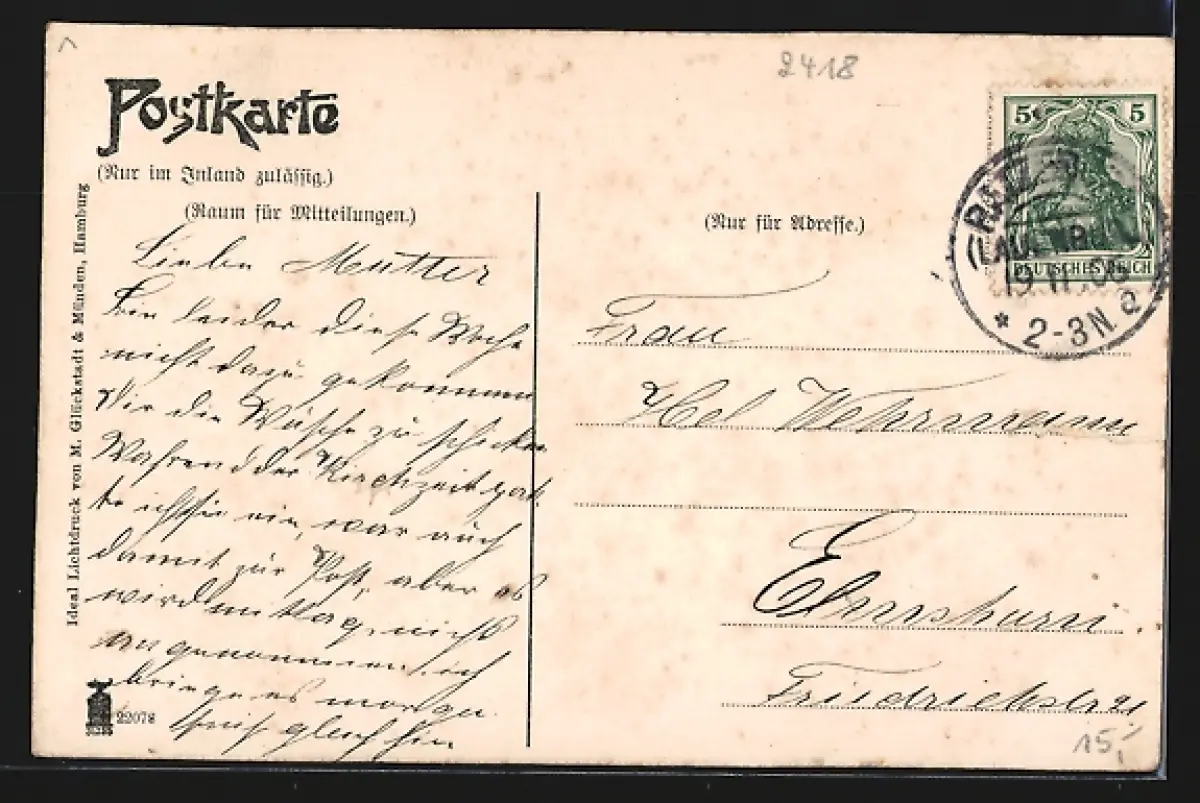 2418
Postkarte
(Nur im Inland zulässig.)
(Raum für Mitteilungen.)
(Nur für Adresse.)
5 5
DEUTSCHES REICH
19
* 2-3N. a
Liebe Mutter
Bin leider diese Woche
nicht dazu gekommen
Dir die Wäsche zu schicken
Während der Kirchzeit pack
te ich sie ein, war auch
damit zur Post, aber es
wird mittag nicht
angenommen. ich
bringe es morgen
früh gleich hin
Frau
Wehrmann
Elmshorn.
Friedrichstr 21
Ideal Lichtdruck von M. Glückstadt & Münden, Hamburg
22078
15,-